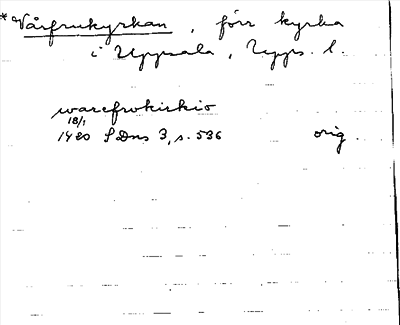 * Vårfrukyrkan, förr kyrka
i Uppsala, Upps. l.
warefrwkirkio
18/1
1420 SDns 3, s. 536 orig.